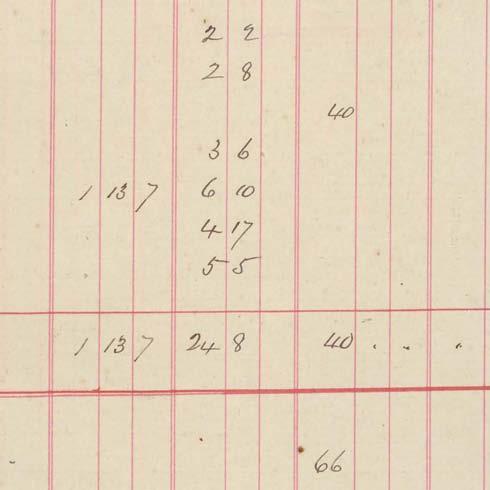 2 2
2 8
40
3 6
1 13 7 6 10
4 17
5 5
1 13 7 24 8 40 . . .
66